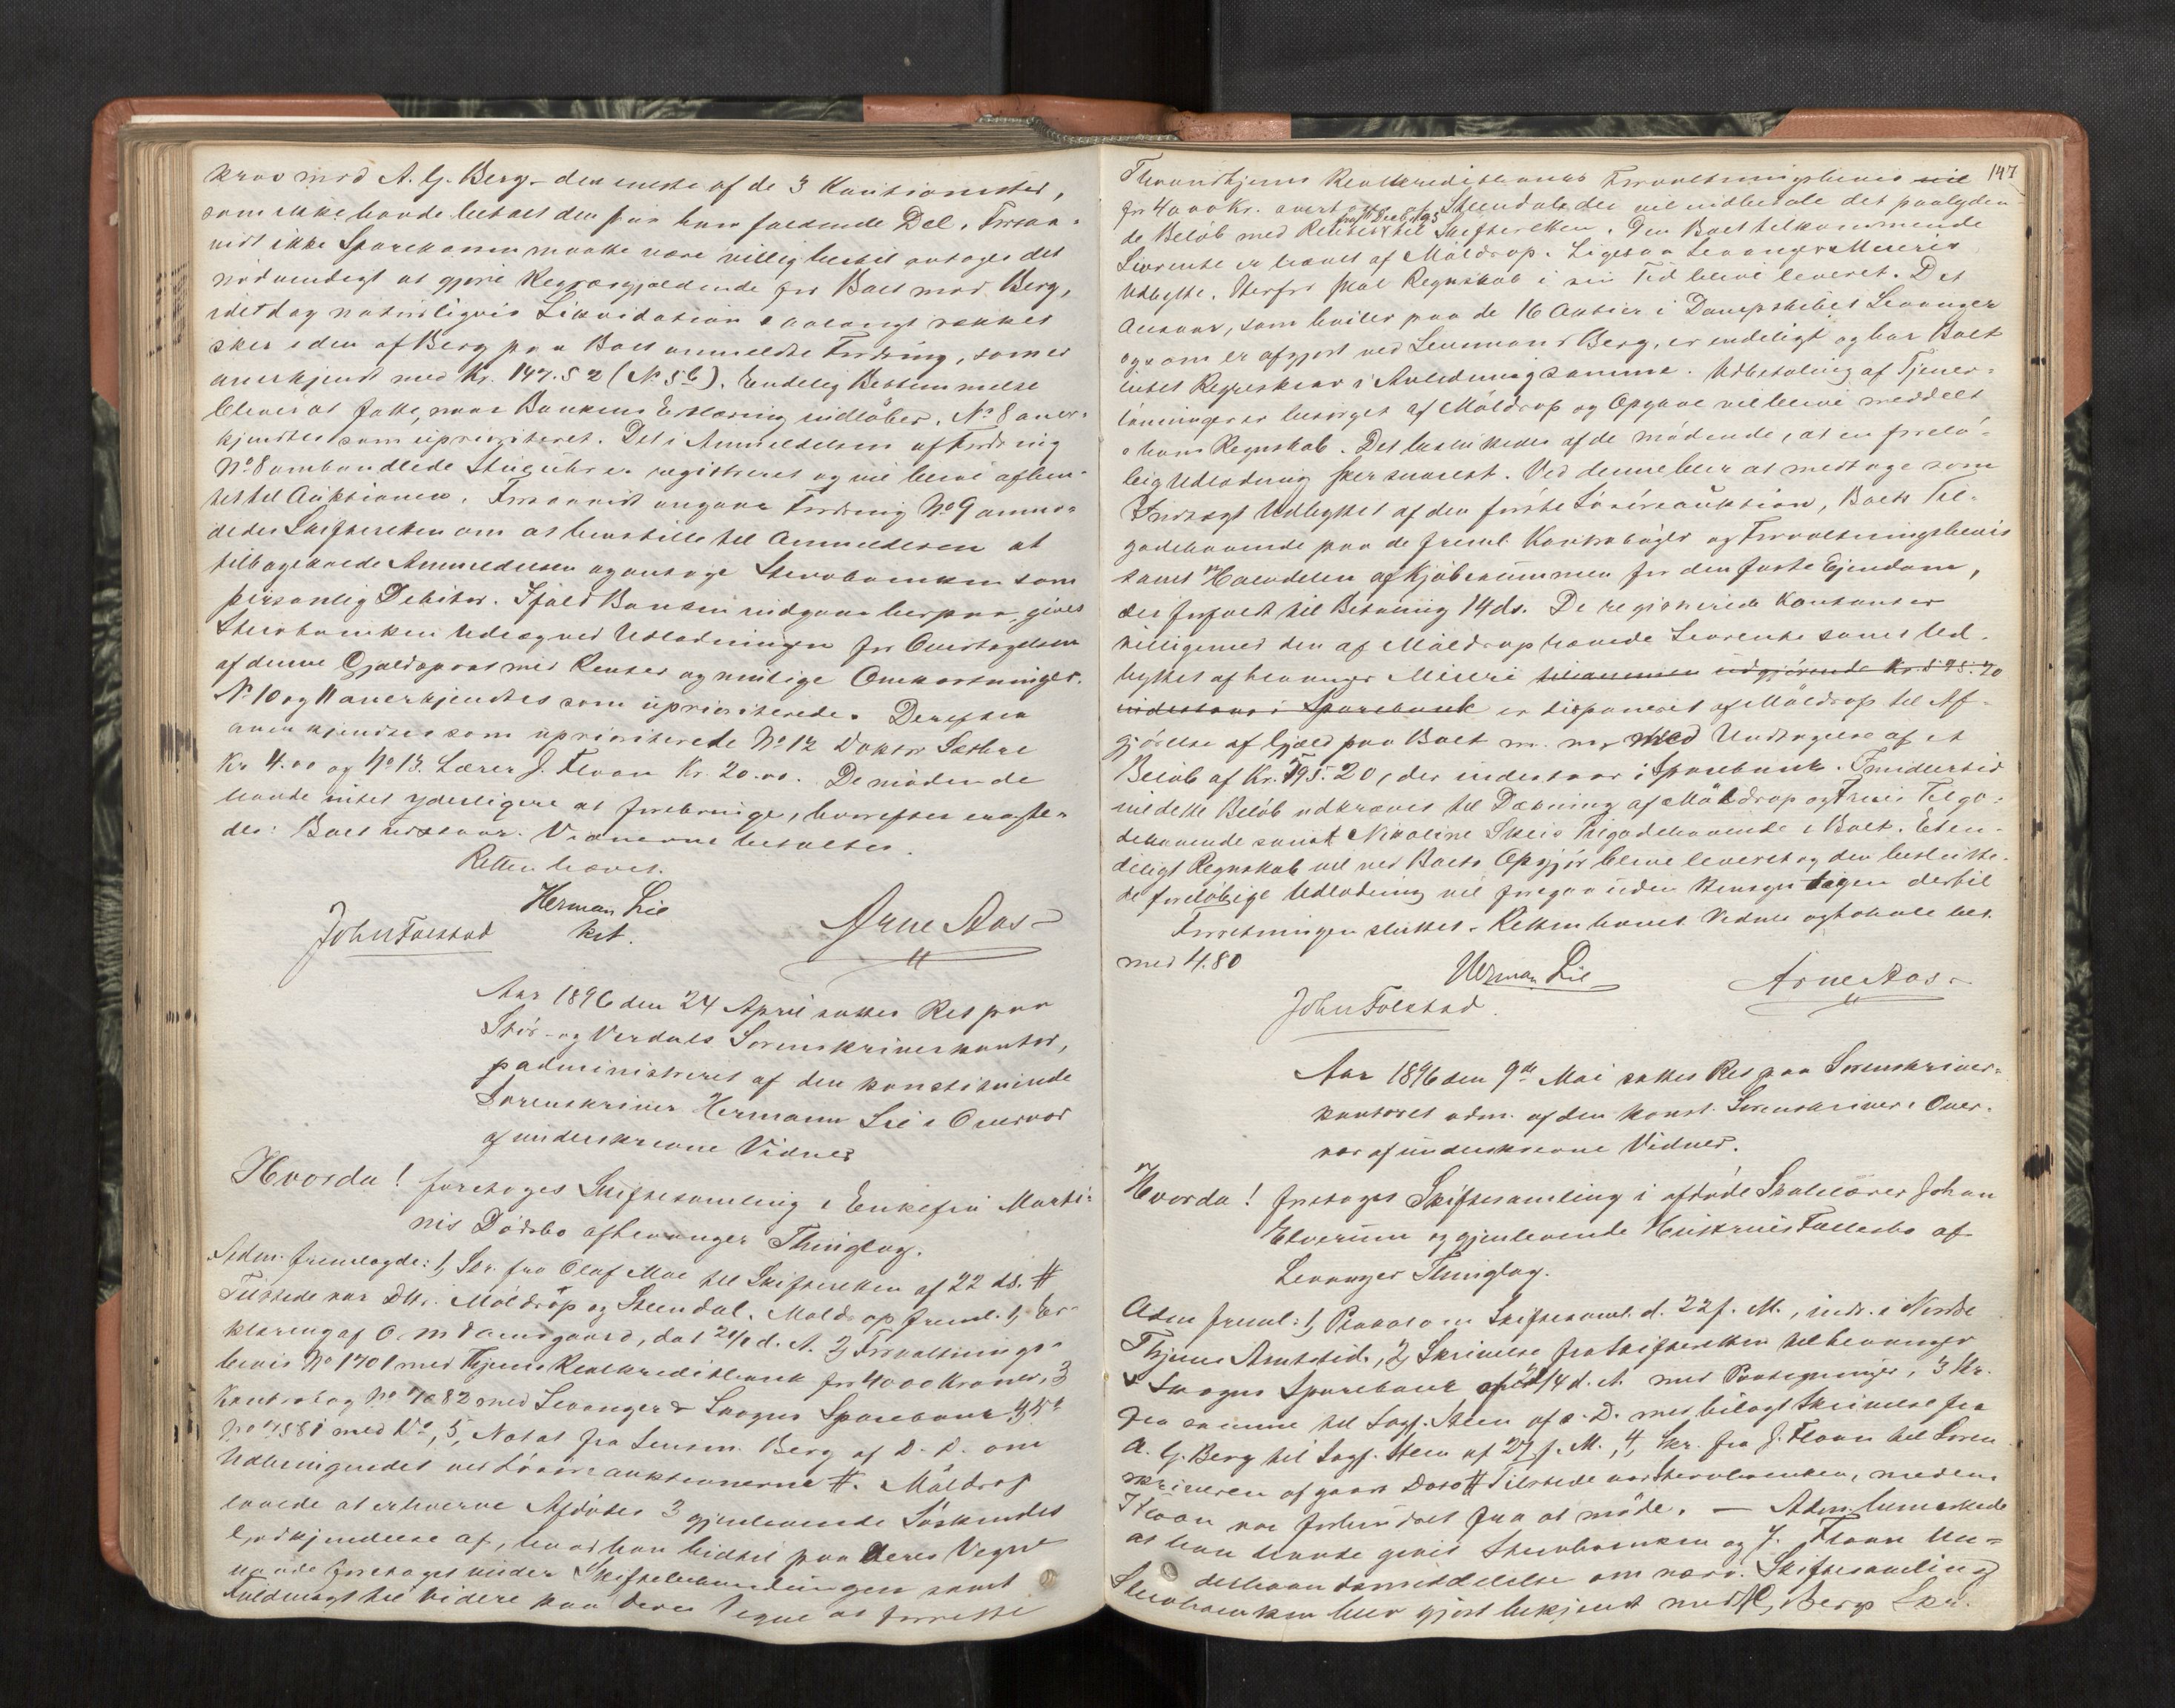 Krav mod A. G. Berg – den eneste af de 3 Kautionister,
som ikke havde betalt den paa ham faldende Del. Forsaa-
vidt ikke Sparekassen maatte være villig hertil antages det
nødvendigt at gjøre Regres gjældende for Boet mod Berg,
idet dog naturligvis Likvidation saalangt rækker
sker i den af Berg paa Boet anmeldte Fordring, som er
anerkjendt med Kr. 147.52 (No 5 b). Endelig Bestemmelse
bliver at fatte, naar Bankens Erklæring indløber. No 8 aner-
kjendtes som uprioriteret. Det i Anmeldelsen af Fordring
No 8 omhandlede Stueuhr er registreret og vil blive afhen-
tet til Auktionen. Forsaavidt angaar Fordring No 9 anmo-
dedes Skifteretten om at henstille til Anmelderen at
tilbagekalde Anmeldelsen og antage Stervboenken som
personlig Debitor. Ifald Banken indgaar herpaa, gives
Stervboenken Udlæg ved Udlodningen for Overtagelsen
af denne Gjældspost med Renter og mulige Omkostninger.
No 10 og 11 anerkjendtes som uprioriterede. Derefter
anerkjendtes som uprioriterede No 12 Doktor Sæthre
Kr 4.00 og No 13. Lærer J. Floan Kr. 20.00. De mødende
havde intet yderligere at frembringe, hvorefter eragte-
des: Boet udstaar. Vidnerne betaltes.
Retten hævet.
Herman Lie
kst.
John Folstad
Arne Aas
Aar 1896 den 24 April sattes Ret paa
Stør- og Verdals Sorenskriverkontor,
administreret af den konstituerede
Sorenskriver Hermann Lie i Overvær
af underskrevne Vidner
Hvorda! foretoges Skiftesamling i Enkefru Marti-
nis Dødsbo af Levanger Thinglag.
Adm. fremlagde: 1, Skr. fra Olaf Moe til Skifteretten af 22 ds. #
Tilstede var DHr. Møldrop og Steendal. Møldrop freml. 1, Er-
klæring af O. M. Damsgaard, dat d. A. 2, Forvaltnings-
bevis No 1701 med Thjems Realkreditbank for 4000 Kroner, 3
Kontrabog No 7082 med Levanger & Skogns Sparebank, 4
No 7581 med Do, 5, Notat fra Lensm. Berg af D. D. om
Udbringendet ved Løsøreauktionerne #. Møldrop
lovede at erhverve Afdødes 3 gjenlevende Søskendes
Godkjendelse af, hvad han hidtil paa deres Vegne
havde foretaget under Skiftebehandlingen samt
Fuldmagt til videre paa deres Vegne at forrette
147
Throndhjems Realkreditbanks Forvaltningsbevis vil
for 4000 Kr. af Steendal, der vil indbetale det paalyden-
fra 11 Decb. 95
de Beløb med Renter til Skifteretten. Den Boet tilkommende
Livrente er hævet af Møldrop. Ligesaa Levanger Meieris
Udbytte. Herfor skal Regnskab i sin Tid blive leveret. Det
Ansvar, som hviler paa de 16 Aktier i Dampskibet Levanger
og som er afgjort ved Lensmand Berg, er endeligt og har Boet
intet Regreskrav i Anledning samme. Udbetaling af Tjener-
lønninger er besørget af Møldrop og Opgave vil blive meddelt
i hans Regnskab. Det besluttedes af de mødende, at en forelø-
big Udlodning sker snarest. Ved denne bliver at medtage som
Indtægt Udbyttet af den første Løsøreauktion, Boets Til-
godehavende paa de freml. Kontrabøger og Forvaltningsbevis
samt Halvdelen af Kjøbesummen for den faste Eiendom,
der forfaldt til Betaling 14 ds. De registrerede Kontanter
tilligemed den af Møldrop hævede Livrente samt Ud-
byttet af Levanger Meieri tilsammen udgjørende Kr. 595.20
indestaar i Sparebank er disponeret af Møldrop til Af-
gjørelse af Gjæld paa Boet m. m. med Undtagelse af et
Beløb af Kr. 595.20, der indestaar i Sparebank. Imidlertid
vil dette Beløb udkræves til Dækning af Møldrop og Frues Tilgo-
dehavende samt Nikoline Skeis Tilgodehavende i Boet. Et en-
deligt Regnskab vil ved Boets Opgjør blive leveret og den beslutte-
de foreløbige Udlodning vil foregaa uden Hensyn tagen dertil
Forretningen sluttet. Retten hævet. Vidner og Lokale bet.
med 4.80
Herman Lie
John Folstad.
Arne Aas
Aar 1896 den 9de Mai sattes Ret paa Sorenskriver-
kontoret adm. af den konst. Sorenskriver i Over-
vær af underskrevne Vidner.
Hvorda! foretoges Skiftesamling i afdøde Skolelærer Johan
Elverum og gjenlevende Hustrues Fællesbo af
Levanger Thinglag.
Adm freml: 1, Proklama Skiftesaml. d. 22 f. M., indr. i Nordre
Thjems Amtstid., 2, Skrivelse fra Skifteretten til Levanger
& Skogns Sparebank af /4 d. A. med Paategninger, 3 Skr.
fra samme til Sagf. Steen af s. D. med bilagt Skrivelse fra
A. G. Berg til Sagf. Steen af 27 f. M., 4, Skr. fra J. Floan til Soren
skriveren af gaars Dato # Tilstede var Stervboenken, medens
Floan var forhindret fra at møde. — Adm. bemærkede
at han havde givet Stervboenken og J. Floan Un-
derhaandsmeddelelse om nærv. Skiftesamling
Stervboenken blev gjort bekjendt med A. G. Bergs Skr.